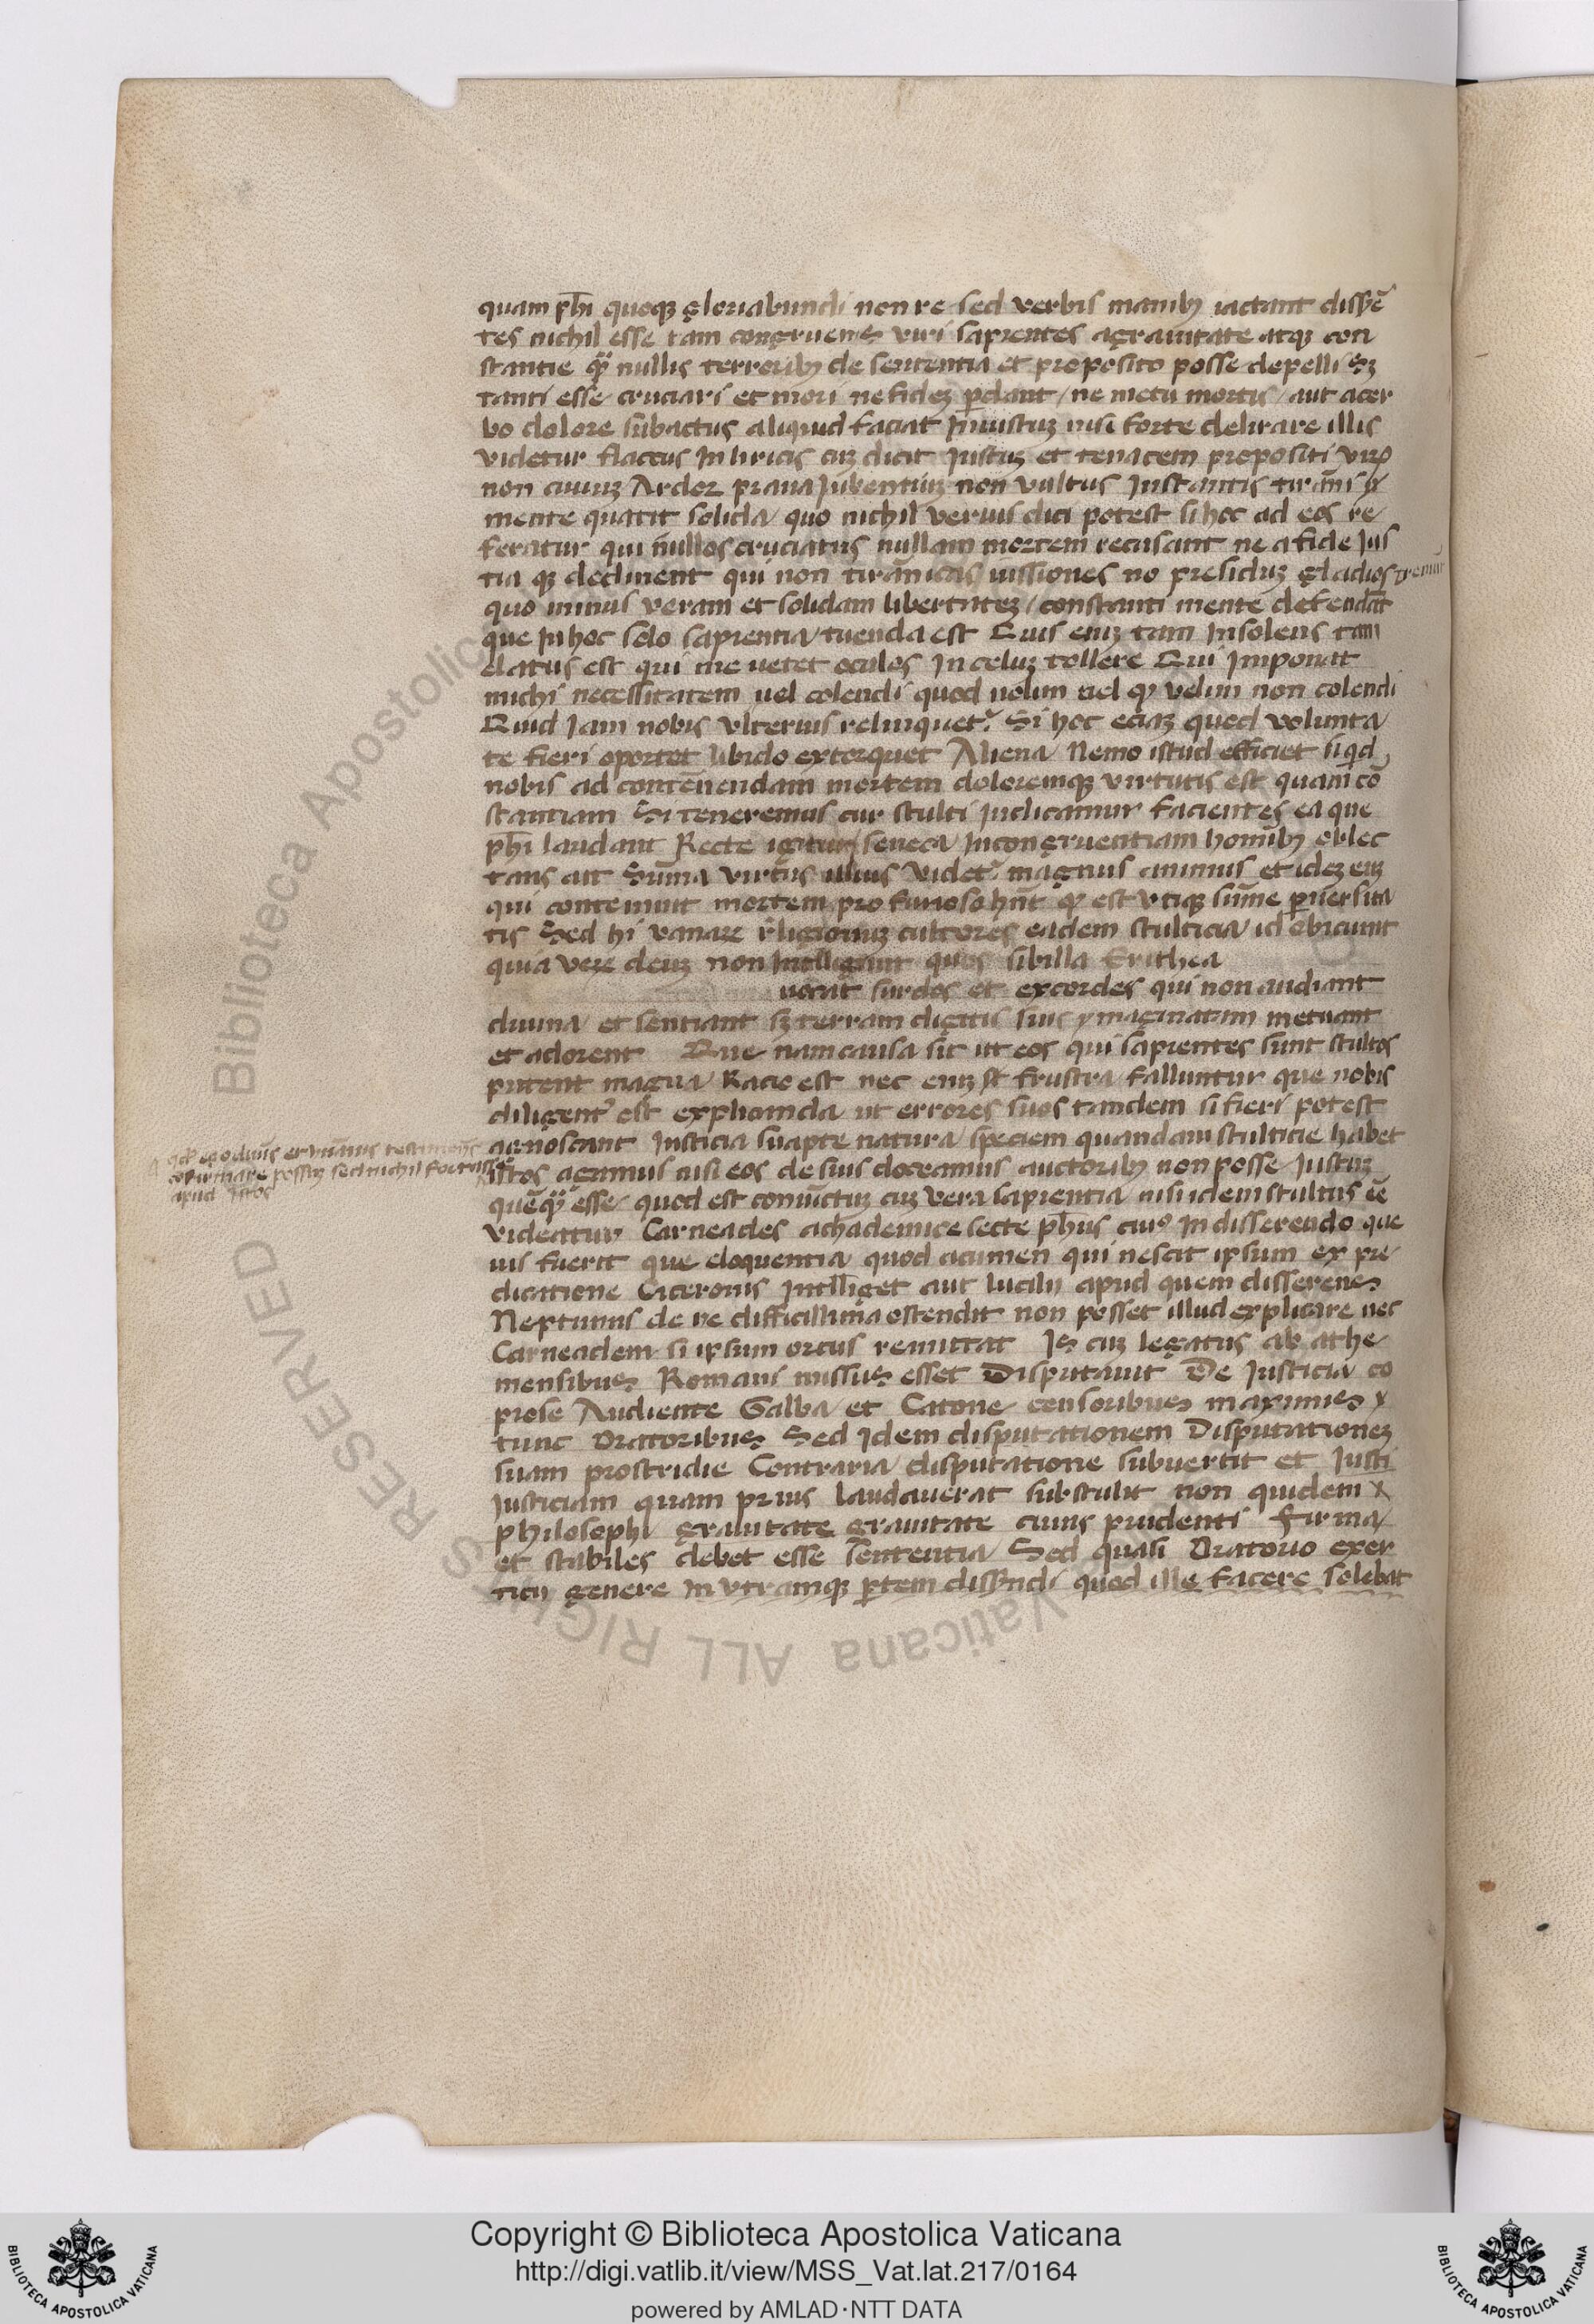 quam ph̄i quoq; gloriabundi non re sed verbis manib; iactant disse͂
tes nichil esse tam congruens viri sapientes agrauitate atq; con
stantie qͣ nullis terrorib; de sententia et proposito posse depelli Sꝫ
tanti esse cruciari et mori ne fideꝫ ꝑdant / ne metu mortis / aut acer
bo dolore subactus aliquid faciat Iniustuꝫ nisi forte delirare illis
videtur flaccus In liricis cuꝫ dicit Iustuꝫ et tenacem propositi viꝝ
non ciuiuꝫ Ardor praua Iubentiuꝫ non vultus Instantis tirān̄is
mente quatit solida quo nichil verius dici potest si hoc ad eos re
feratur qui nullos cruciatus nullam mortem recusant ne a fide Ius
tia q; declinent qui non tirannicas iussiones no presiduꝫ gladios tremunt
quo minus veram et solidam libertateꝫ / constanti mente defendāt
que In hoc solo sapientia tuenda est Quis eniꝫ tam Insolens tam
elatus est qui me uetet oculos In celuꝫ tollere Qui Imponat
michi necessitatem uel colendi quod nolim uel qꝫ velim non colendi
Quid Iam nobis vlterius relinquet᷑ Si hoc eciaꝫ quod volunta
te fieri oportet libido extorquet Aliena Nemo istud efficiet si qd
nobis ad contēnendam mortem doloremq; virtutis est quam cō
stantiam Si teneremus cur stulti Iudicamur facientes ea que
ph̄i laudant Recte igitur seneca Incongruentiam homīb; oblec
tans ait Sūma virtus illius videt᷑ magnus animus et ideꝫ eiꝫ
qui contemnit mortem pro furioso hn̄t qꝫ est vtiq; sūme ꝑuersita
tis Sed hi vanaꝝ r̄ligionuꝫ cultores eadem stulticia id obiciunt
quia veꝝ deuꝫ non Intelligunt quos sibilla Erithea
uocat surdos et excordes qui non audiant
diuina et sentiant sꝫ terram digitis suis ymaginatam metuant
et adorent Que nam causa sit ut eos qui sapientes sunt stultos
putent magna Racio est nec eniꝫ frustra falluntur que nobis
diligent᷑ est explicanda ut errores suos tandem si fieri potest
agnoscant Iusticia suapte natura speciem quandam stulticie habet
qd ego diuīs et hūanis testimonijs
cōfirmare possuꝫ sed nichil fortass
apud istos
istos agamus nisi eos de suis doceamus auctorib; non posse Iustuꝫ
quēqͣ esse quod est coniūctuꝫ cuꝫ vera sapientia nisi idem stultus ēe
videatur Carneades achademice secte ph̄us cuiꝰ In disserendo que
uis fuerit que eloquentia quod acumen qui nescit ipsum ex pre
dicatione Ciceronis Intll̄iget aut lucilij apud quem disserens
Neptunus de re difficillima ostendit non posset illud explicare nec
Carneadem si ipsum orcus remittat Is cuꝫ legatus ab athe
mensibus Romani missus esset Disputauit De Iusticia co
piose Audiente Galba et Catone censoribus maximis
tunc Oratoribus Sed Idem disputationem Disputationeꝫ
suam prostridie Contraria disputatione subuertit et Iusti
Iusticiam quam prius laudauerat substulit non quidem
philosophi grauitate grauitate cuius prudenti firma
et stabiles debet esse sententia Sed quasi Oratorio exer
ticij genere In vtramq; ꝑtem disserēndi quod ille facere solebat
Copyright © Biblioteca Apostolica Vaticana
http://digi.vatlib.it/view/MSS_Vat.lat.217/0164
powered by AMLAD·NTT DATA